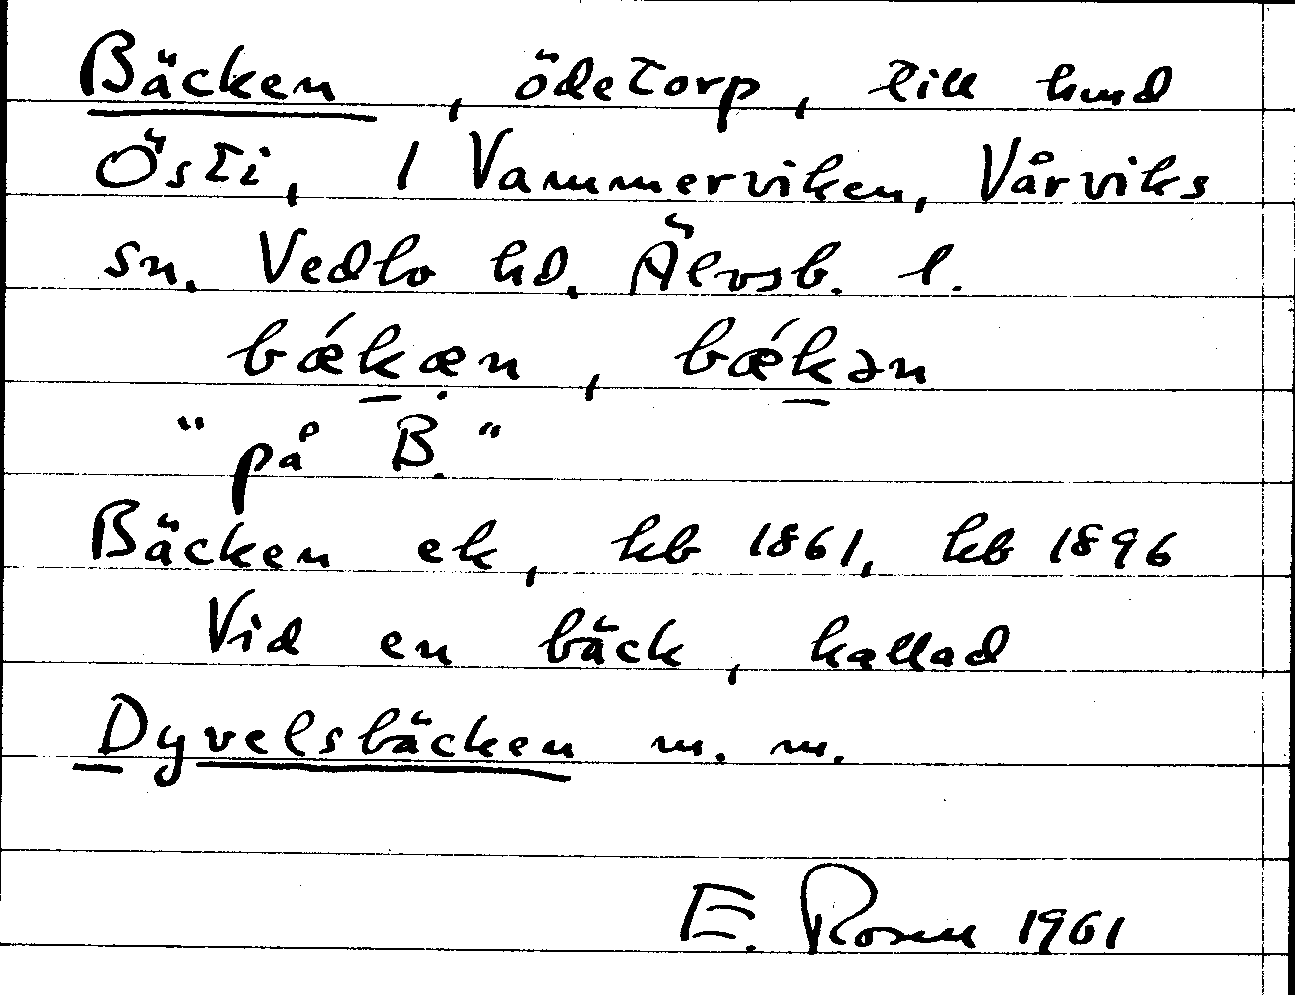 Bäcken, ödetorp, till hmd
Östi, 1 Vammerviken, Vårviks
sn. Vedbo hd. Älvsb. l.
bǽkæn, bǽkən
"på B."
Bäcken ek, kb 1861, kb 1896
Vid en bäck, kallad
Dyvelsbäcken m. m.
E. Rosell 1961